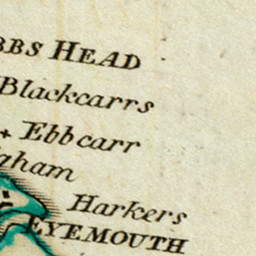 BBS HEAD
Blackcarrs
+ Ebbcarr
gham
Harkers
EYEMOUTH